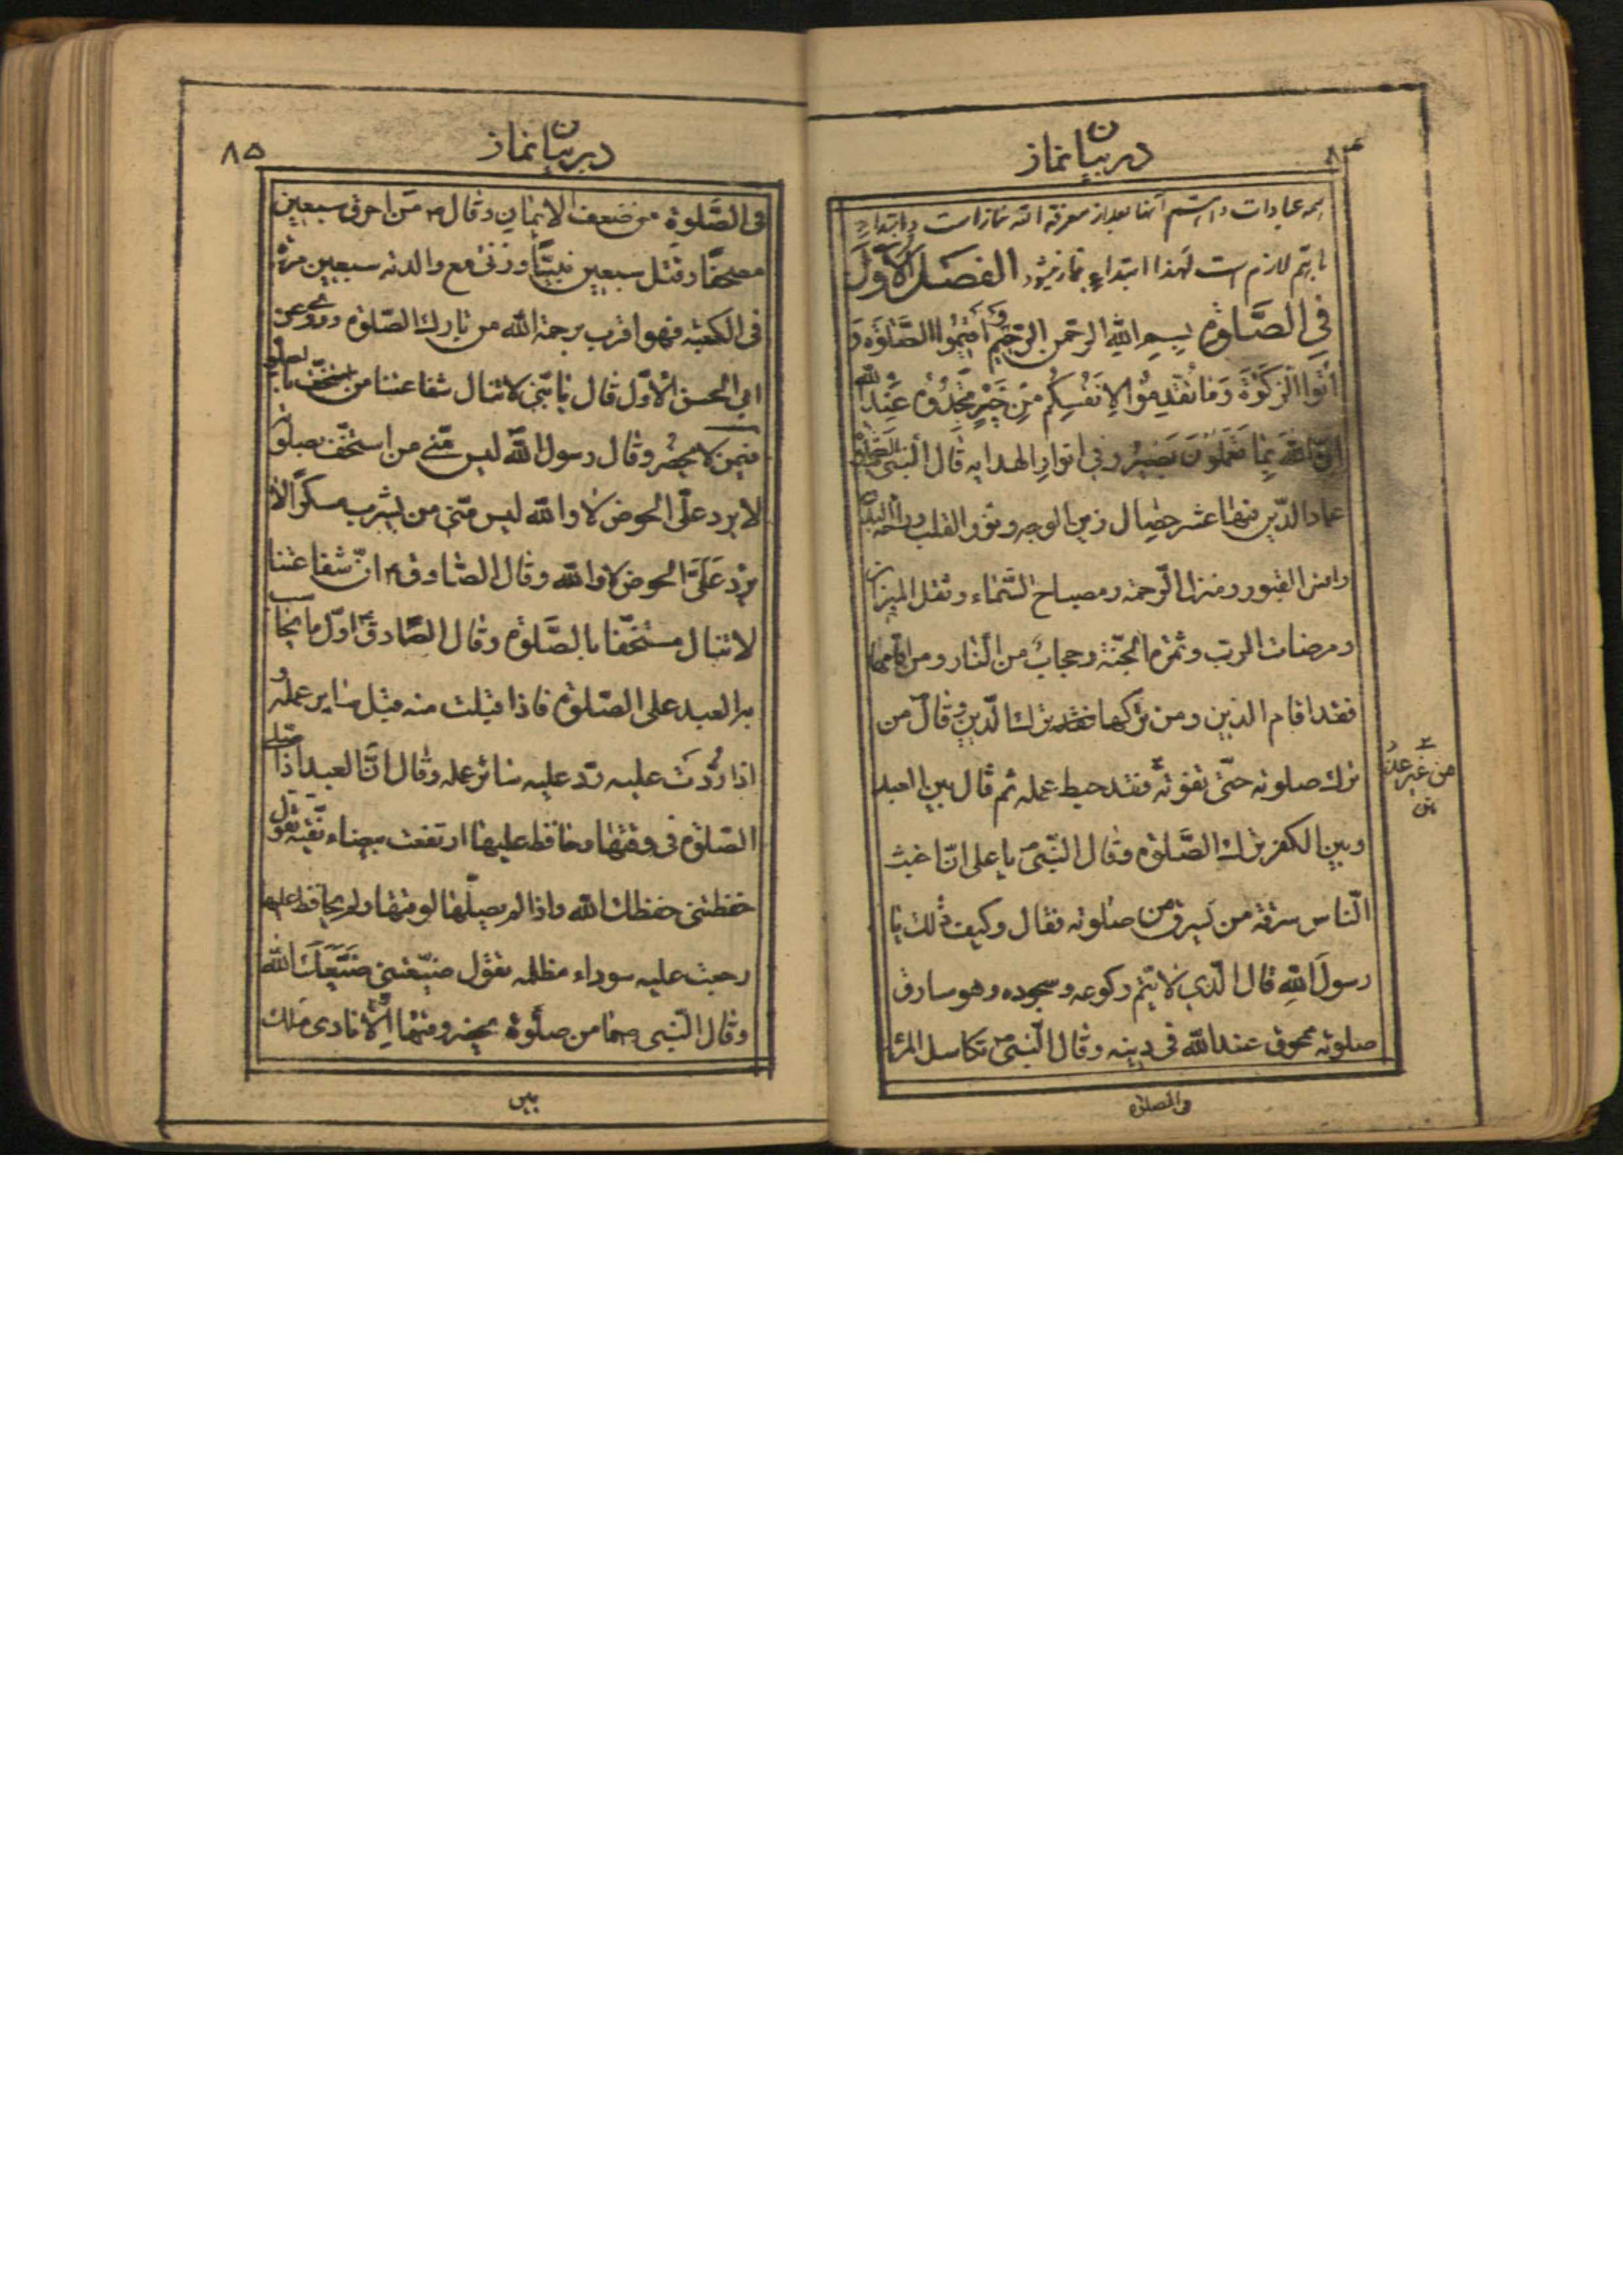 در بیان نماز
۸۴
همه عبادات و اهم آنها بعد از معرفة الله نماز است و ابتداء
باهم لازم است لهذا ابتداء بنماز میشود الفصل الاول
في الصلوة بسم الله الرحمن الرحیم و أقیموا الصلوة و
آتوا الزکوة وما تقدموا لانفسکم من خیر تجدوه عند الله
إن الله بما تعملون بصیر وفي انوار الهدایه قال النبی الصلوة
عماد الدین فیها عشر خصال زین الوجه و نور القلب و راحة البدن
وانس القبور و منزل الرحمة و مصباح السماء و ثقل المیزان
ومرضات الرب و ثمرة الجنة و حجاب من النار و من اقامها
فقد اقام الدین ومن ترکها فقد ترک الدین و قال من
ترك صلوته حتی تفوته فقد حبط عمله ثم قال بین العبد
من غیر عذر
وبین الکفر ترك الصلوة وقال النبی یا علی انا غیث
الناس سرقة من یسرق من صلوته فقال وکیف ذلك یا
رسول الله قال الذی لا یتم رکوعه و سجوده و هو سارق
صلوته محوق عند الله في دینه وقال النبی تکاسل المرء
فی الصلوة
در بیان نماز
۸۵
فی الصلوة من ضعف الایمان وقال من احرق سبعین
مصحفا و قتل سبعین نبیا و زنی مع والدته سبعین مرة
فی الکعبة فهو اقرب برحمة الله من تارك الصلوة و روی عن
ابی الحسن الاول قال یا بنی لا تنال شفاعتنا من استخف بالصلوة
وقال رسول الله لیس منی من استخف بصلوته
لا یرد علی الحوض لا والله لیس منی من یشرب مسکرا لا
یرد علی الحوض لا والله وقال الصادق ان شفاعتنا
لا تنال مستخفا بالصلوة وقال الصادق اول ما یحاسب
به العبد علی الصلوة فاذا قبلت منه قبل سایر عمله و
اذا ردت علیه رد علیه سائر عمله وقال ان العبد اذا صلی
الصلوة فی وقتها وحافظ علیها ارتفعت بیضاء نقیة تقول
حفظتنی حفظك الله واذا لم یصلها لوقتها ولم یحافظ علیها
رجعت علیه سوداء مظلمه تقول ضیعتنی ضیعك الله
وقال النبی ص ما من صلوة یحضر وقتها الا نادی ملك
بین